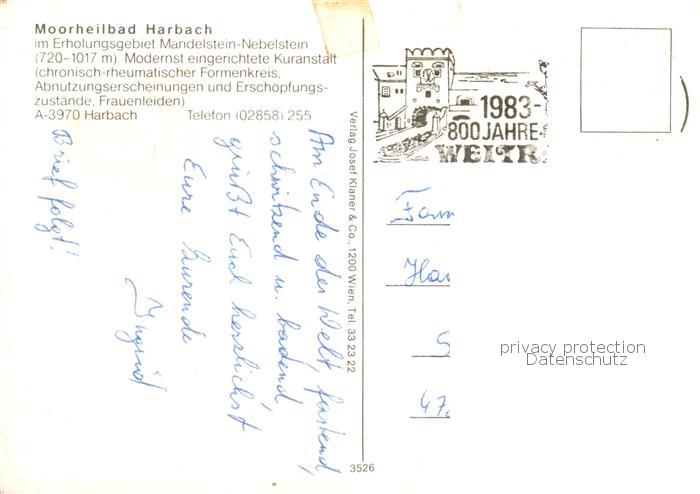 Moorheilbad Harbach
im Erholungsgebiet Mandelstein-Nebelstein
(720–1017 m). Modernst eingerichtete Kuranstalt
(chronisch-rheumatischer Formenkreis,
Abnutzungserscheinungen und Erschöpfungs-
zustände, Frauenleiden)
A-3970 Harbach Telefon (02858) 255
Am Ende der Welt, fastend,
schwitzend u. badend
grüßt Euch herzlichst,
Eure Kurende
Ingrid
Brief folgt!
Verlag Josef Klaner & Co., 1200 Wien, Tel. 33 23 22
3526
1983-
800 JAHRE
WEITR
Fam
Ha
S
47.
privacy protection
Datenschutz